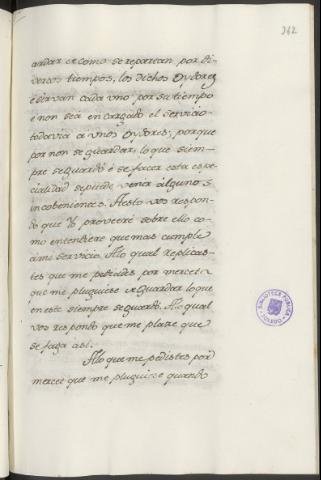 362
ardar et como se repartan por di-
versos tiempos, los dichos oydores
e sirvan cada vno por su tiempo
e non sea encargado el servicio
todavia a vnos oydores, porque
por non se guardar, lo que siem-
pre se guardó é se facer esta espe-
cialidad se puede venir algunos
incobenientes. A esto vos respon-
do que Yo proveeré sobre ello co-
mo entendiere que mas cumple
á mi servicio. A lo qual replicas-
tes que me pediades por merced
que me pluguiese et guardar lo que
en esto siempre se guardó. A lo qual
vos respondo que me plaze que
se faga asi.
A lo que me pedistes por
merced que me pluguiese quando
BIBLIOTECA PUBLICA
TOLEDO